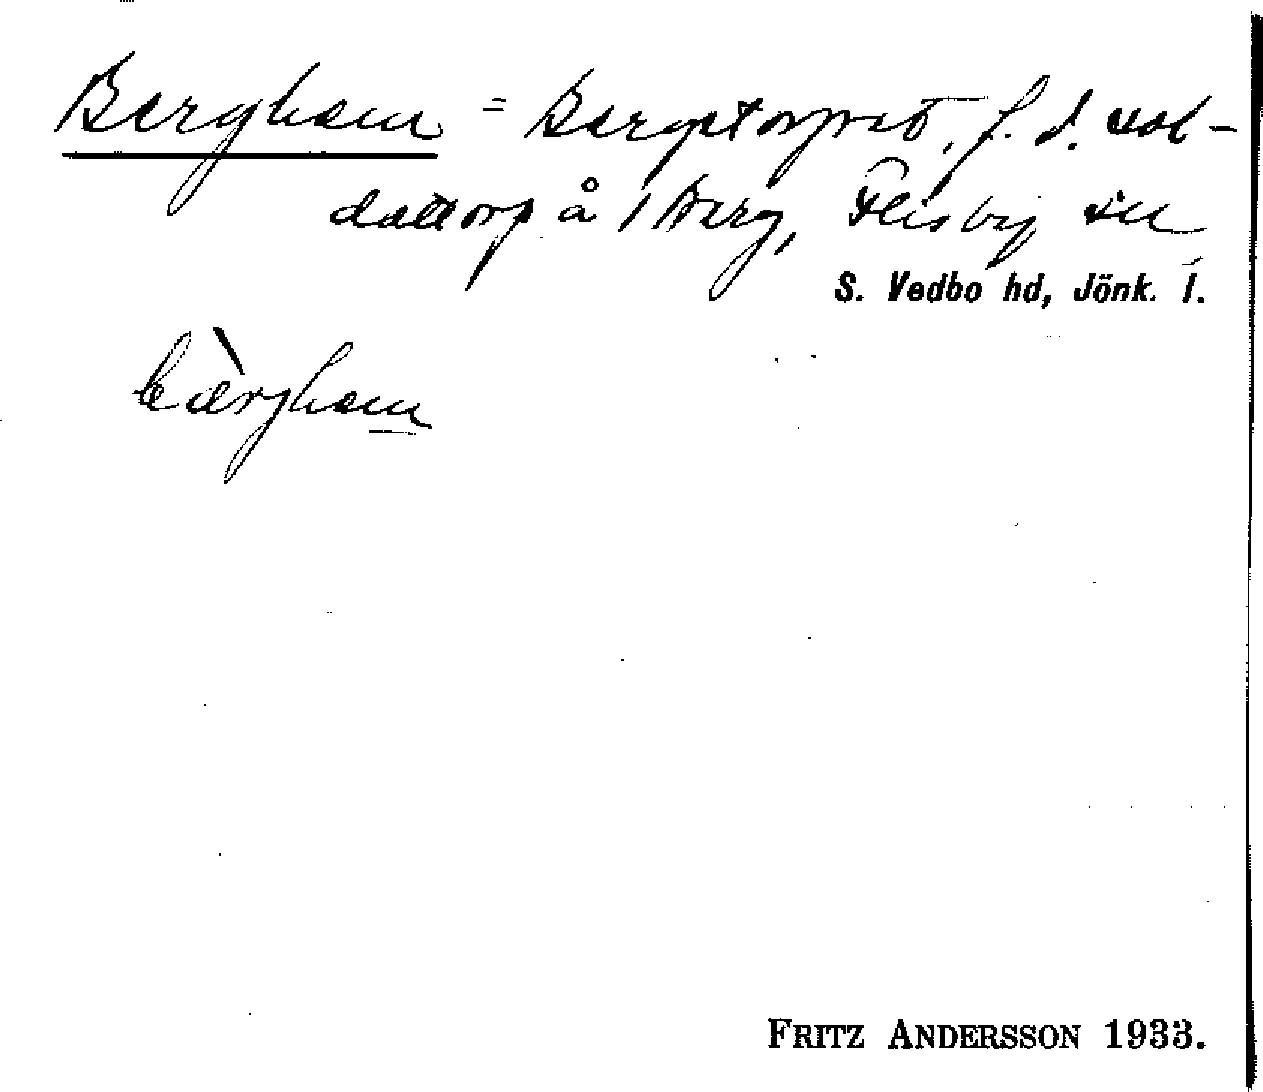 Bergham = Bergstorpet, f. d. sol-
dattorp å Berg, Flisby sn
S. Vedbo hd, Jönk. l.
bàrgham
FRITZ ANDERSSON 1933.